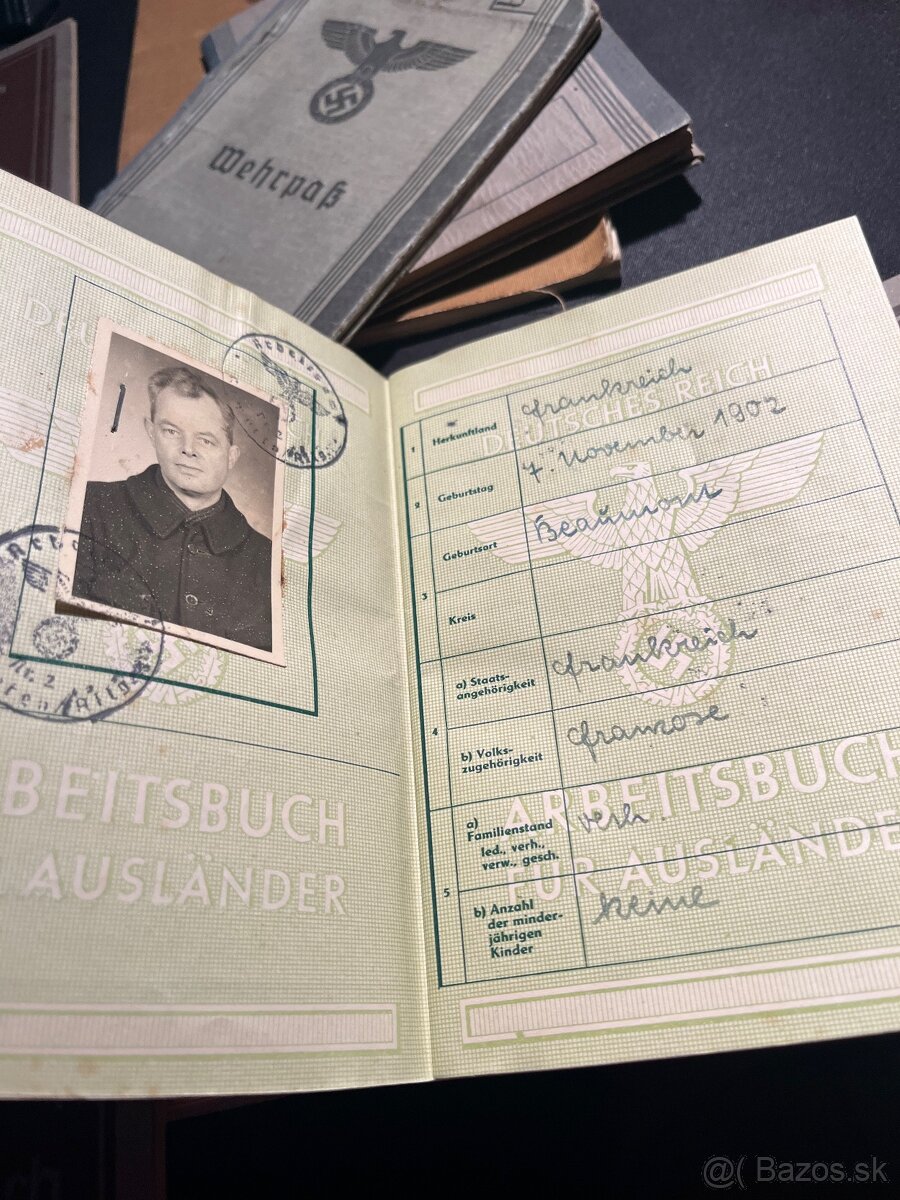 Wehrpaß
DEUTSCHES REICH
1 Herkunftland Frankreich
2 Geburtstag 7. November 1902
3 Geburtsort Beaumont
Kreis
4 a) Staats-
angehörigkeit Frankreich
b) Volks-
zugehörigkeit Franzose
5 a)
Familienstand
led., verh.,
verw., gesch. verh.
b) Anzahl
der minder-
jährigen
Kinder keine
BEITSBUCH
AUSLÄNDER
ARBEITSBUCH
FÜR AUSLÄNDE
@( Bazos.sk